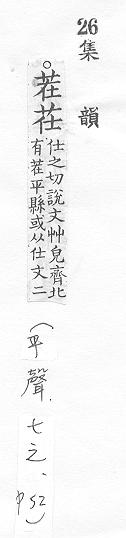 26
集韻
○茬茌
仕之切說文艸皃齊北
有茬平縣或从仕文二
(平聲.七之、P52)